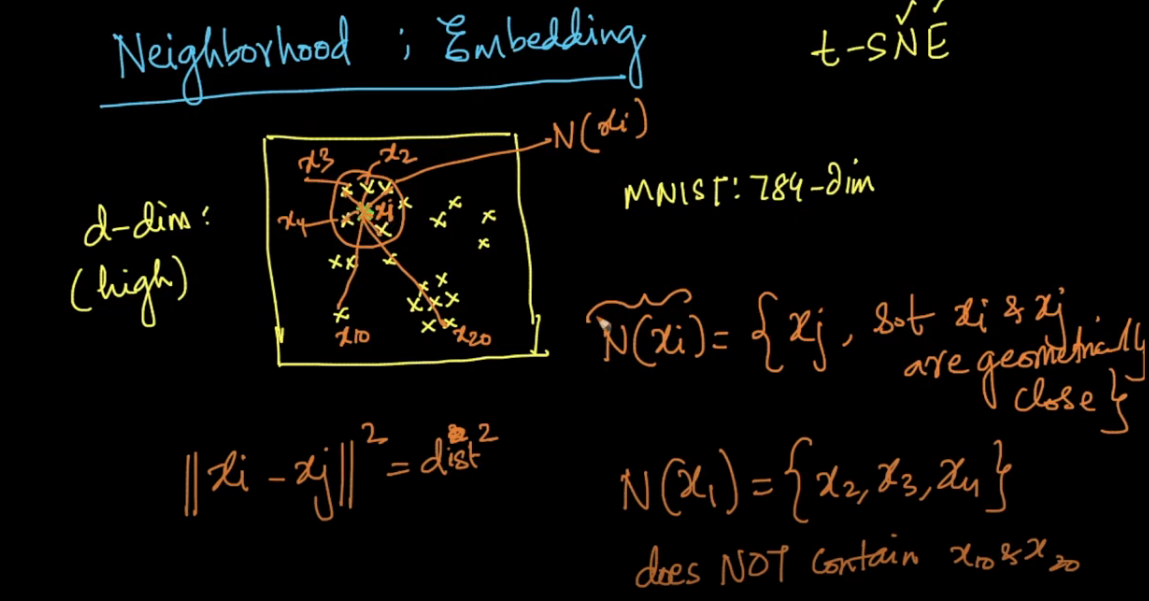 Neighborhood ; Embedding
t-SNE
N(xi)
x3 x2
x4 xi
x10 x20
d-dim:
(high)
MNIST: 784-dim
N(xi) = { xj, s.t xi & xj
are geometrically
close }
||xi - xj||² = dist²
N(x1) = { x2, x3, x4 }
does NOT contain x10 & x20